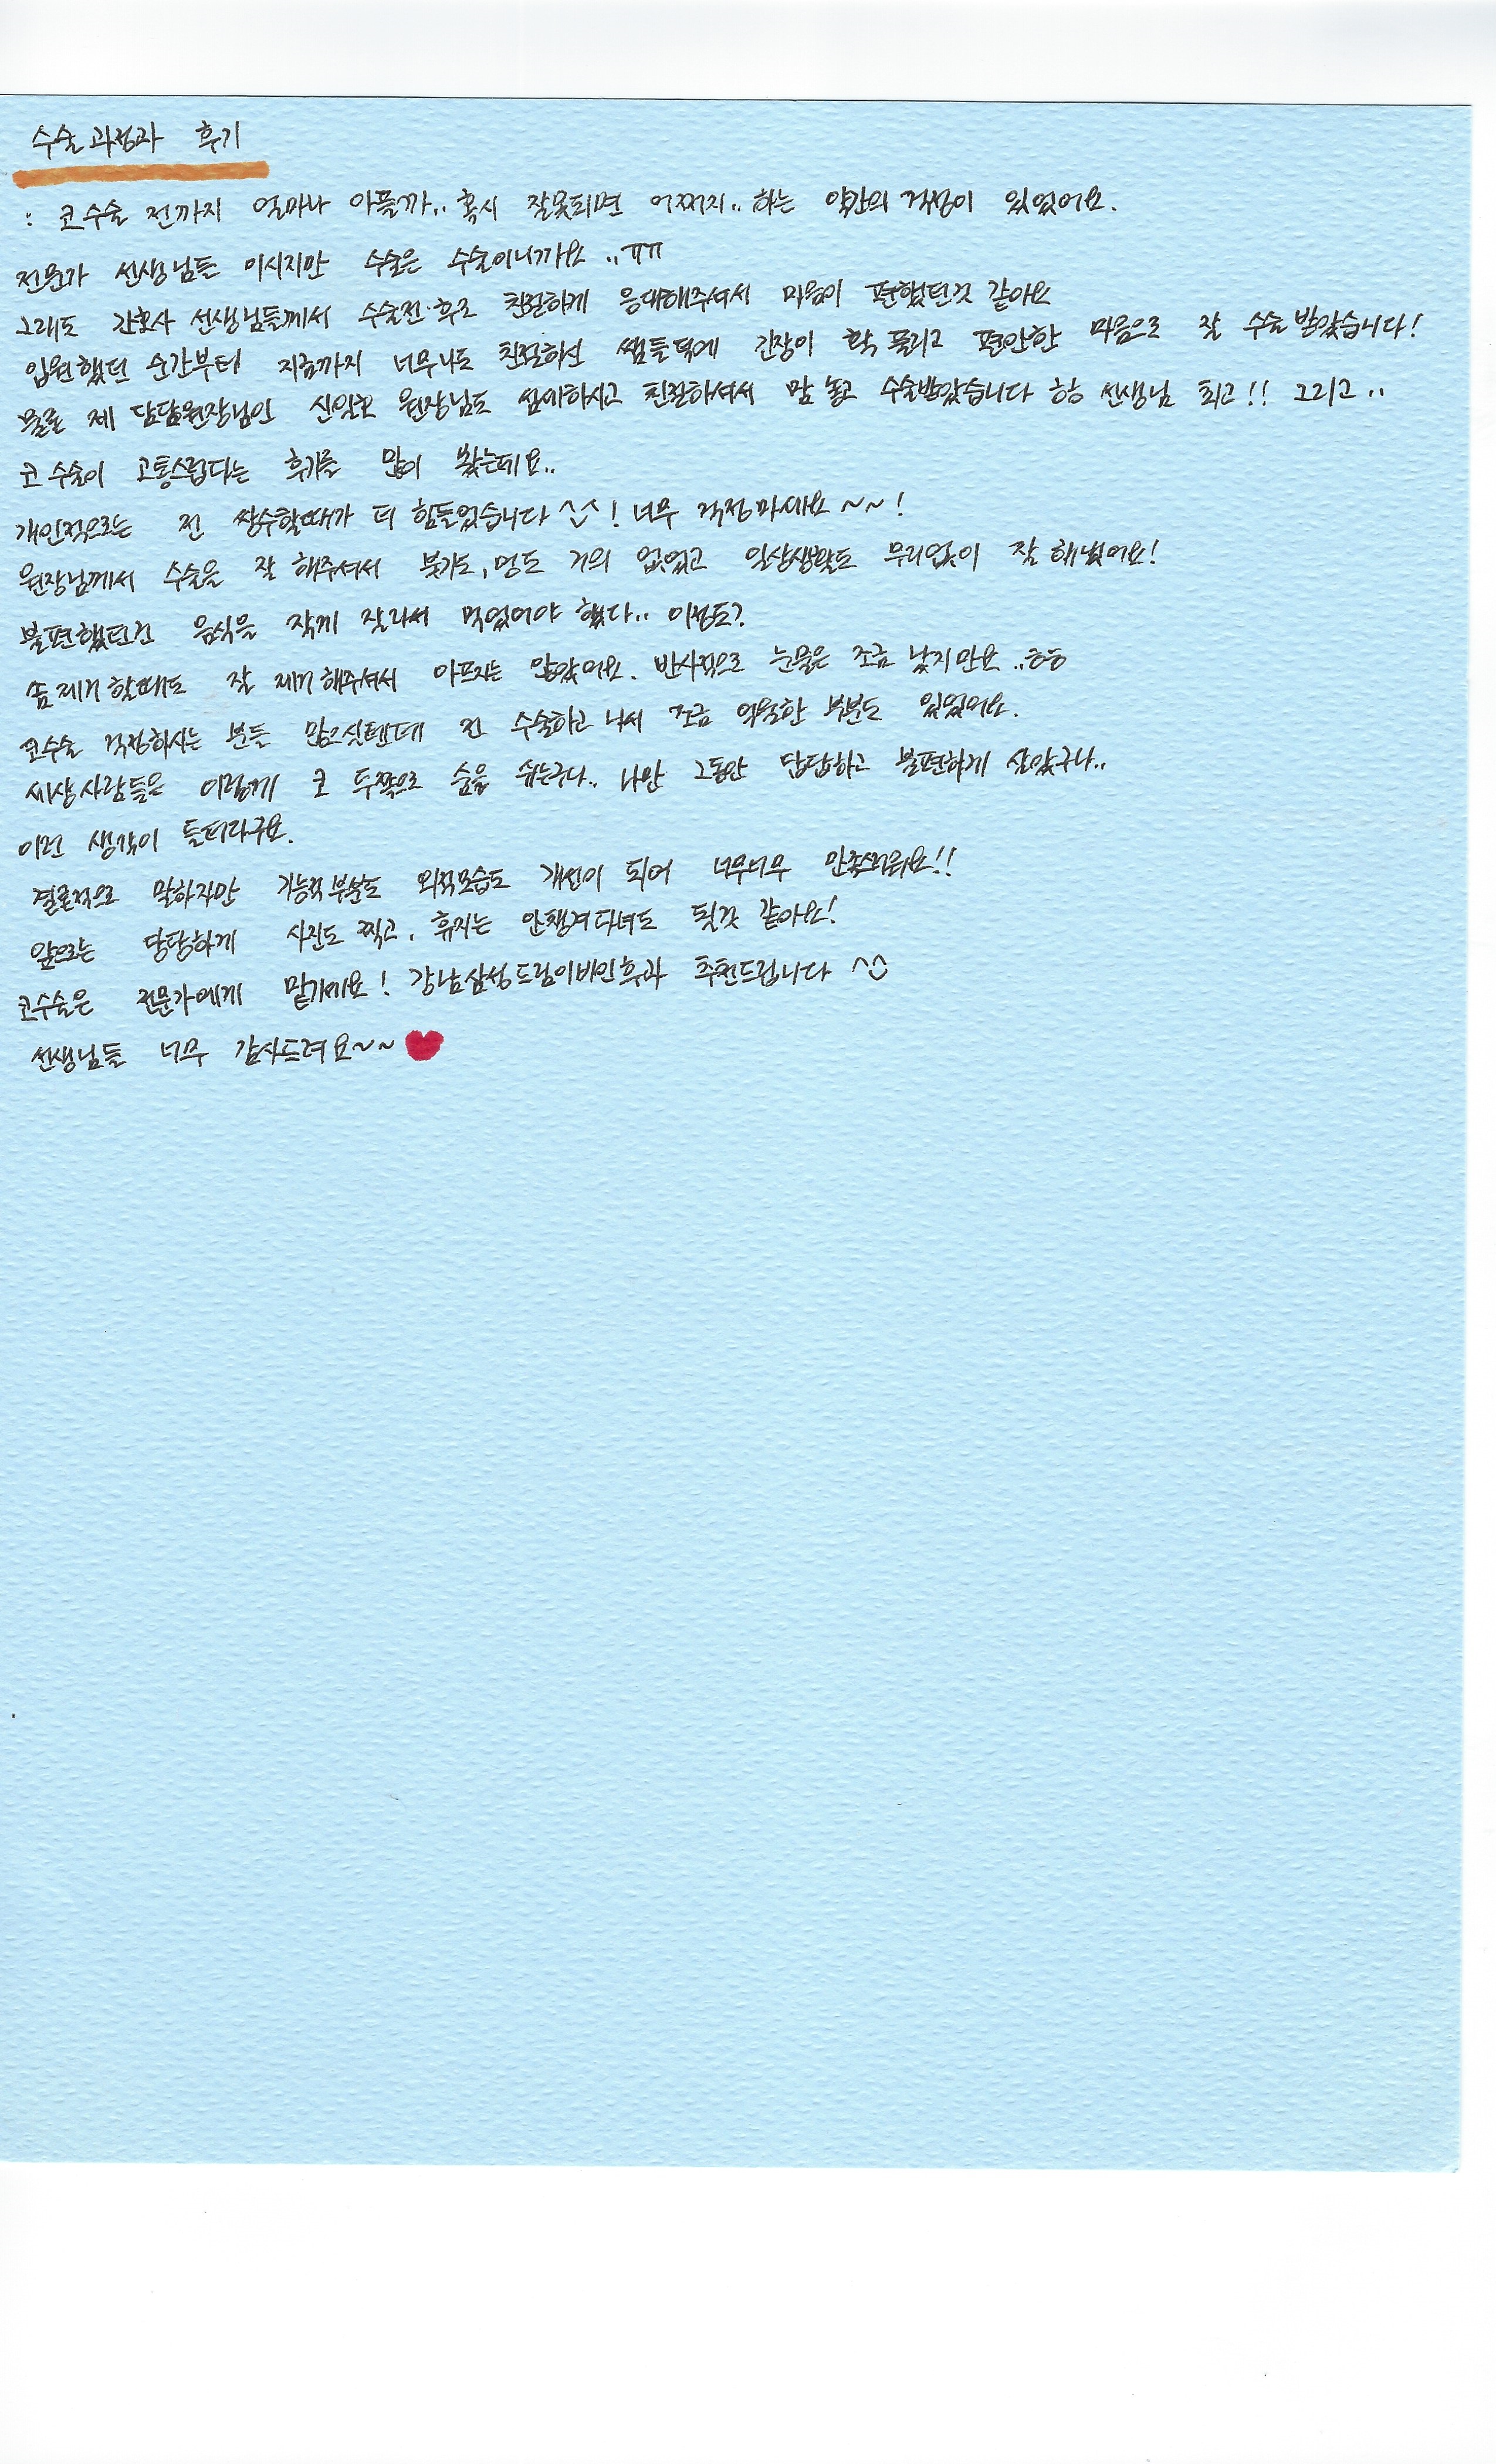 수술과정과 후기
: 코수술 전까지 얼마나 아플까.. 혹시 잘못되면 어쩌지.. 하는 약간의 걱정이 있었어요.
전문가 선생님들 이시지만 수술은 수술이니까요 ..ㅠㅠ
그래도 간호사 선생님들께서 수술전·후로 친절하게 응대해주셔서 마음이 편했던것 같아요
입원했던 순간부터 지금까지 너무나도 친절하신 쌤들덕에 긴장이 확 풀리고 편안한 마음으로 잘 수술받았습니다!
물론 제 담당원장님인 원장님도 섬세하시고 친절하셔서 맘 놓고 수술받았습니다 ㅎㅎ 선생님 최고!! 그리고..
코 수술이 고통스럽다는 후기를 많이 봤는데요..
개인적으로는 전 쌍수할때가 더 힘들었습니다 ^^! 너무 걱정마세요~~!
원장님께서 수술을 잘 해주셔서 붓기도, 멍도 거의 없었고 일상생활도 무리없이 잘 해냈어요!
불편했던건 음식을 작게 잘라서 먹었어야 했다.. 이정도?
솜제거 할때도 잘 제거해주셔서 아프지는 않았어요. 반사적으로 눈물은 조금 났지만요..ㅎㅎ
코수술 걱정하시는 분들 많으실텐데 전 수술하고 나서 조금 억울한 부분도 있었어요.
세상사람들은 이렇게 코 두쪽으로 숨을 쉬는구나.. 나만 그동안 답답하고 불편하게 살았구나..
이런 생각이 들더라구요.
결론적으로 말하자만 기능적부분도 외적모습도 개선이 되어 너무너무 만족스러워요!!
앞으로는 당당하게 사진도 찍고, 휴지는 안챙겨다녀도 될것 같아요!
코수술은 전문가에게 맡기세요! 강남삼성드림이비인후과 추천드립니다 ^^
선생님들 너무 감사드려요~~ ♥